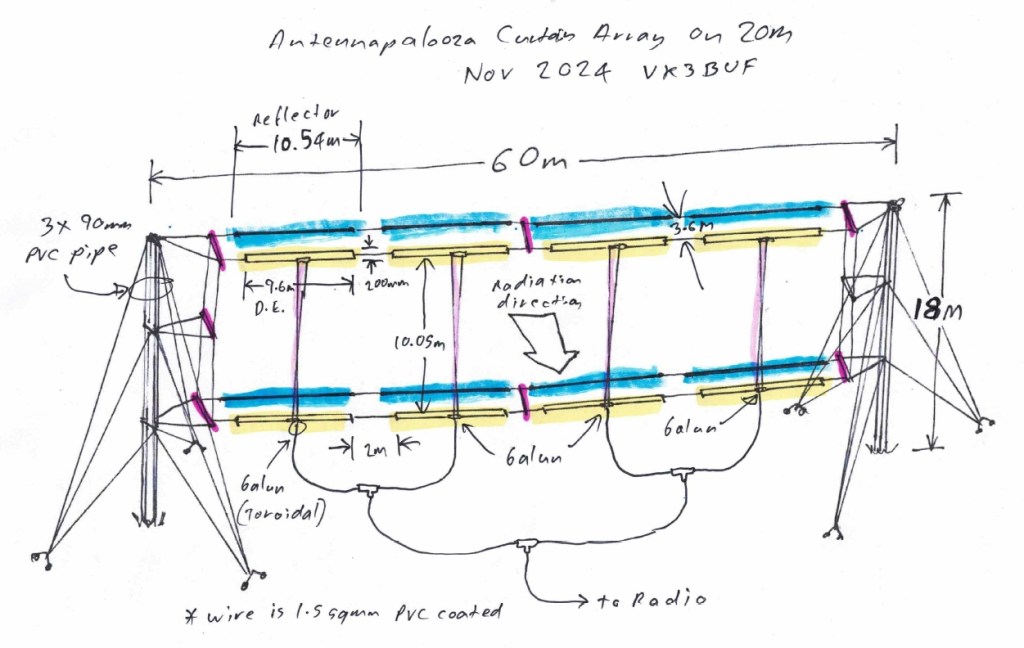 Antennapalooza Curtain Array on 20m
Nov 2024 VK3BUF
Reflector
10.54m
60m
3x 90mm
PVC pipe
3.6M
9.6m
D.E.
200mm
Radiation
direction
10.05m
18M
2m
Balun
(Toroidal)
Balun
Balun
to Radio
* wire is 1.5 sqmm PVC coated